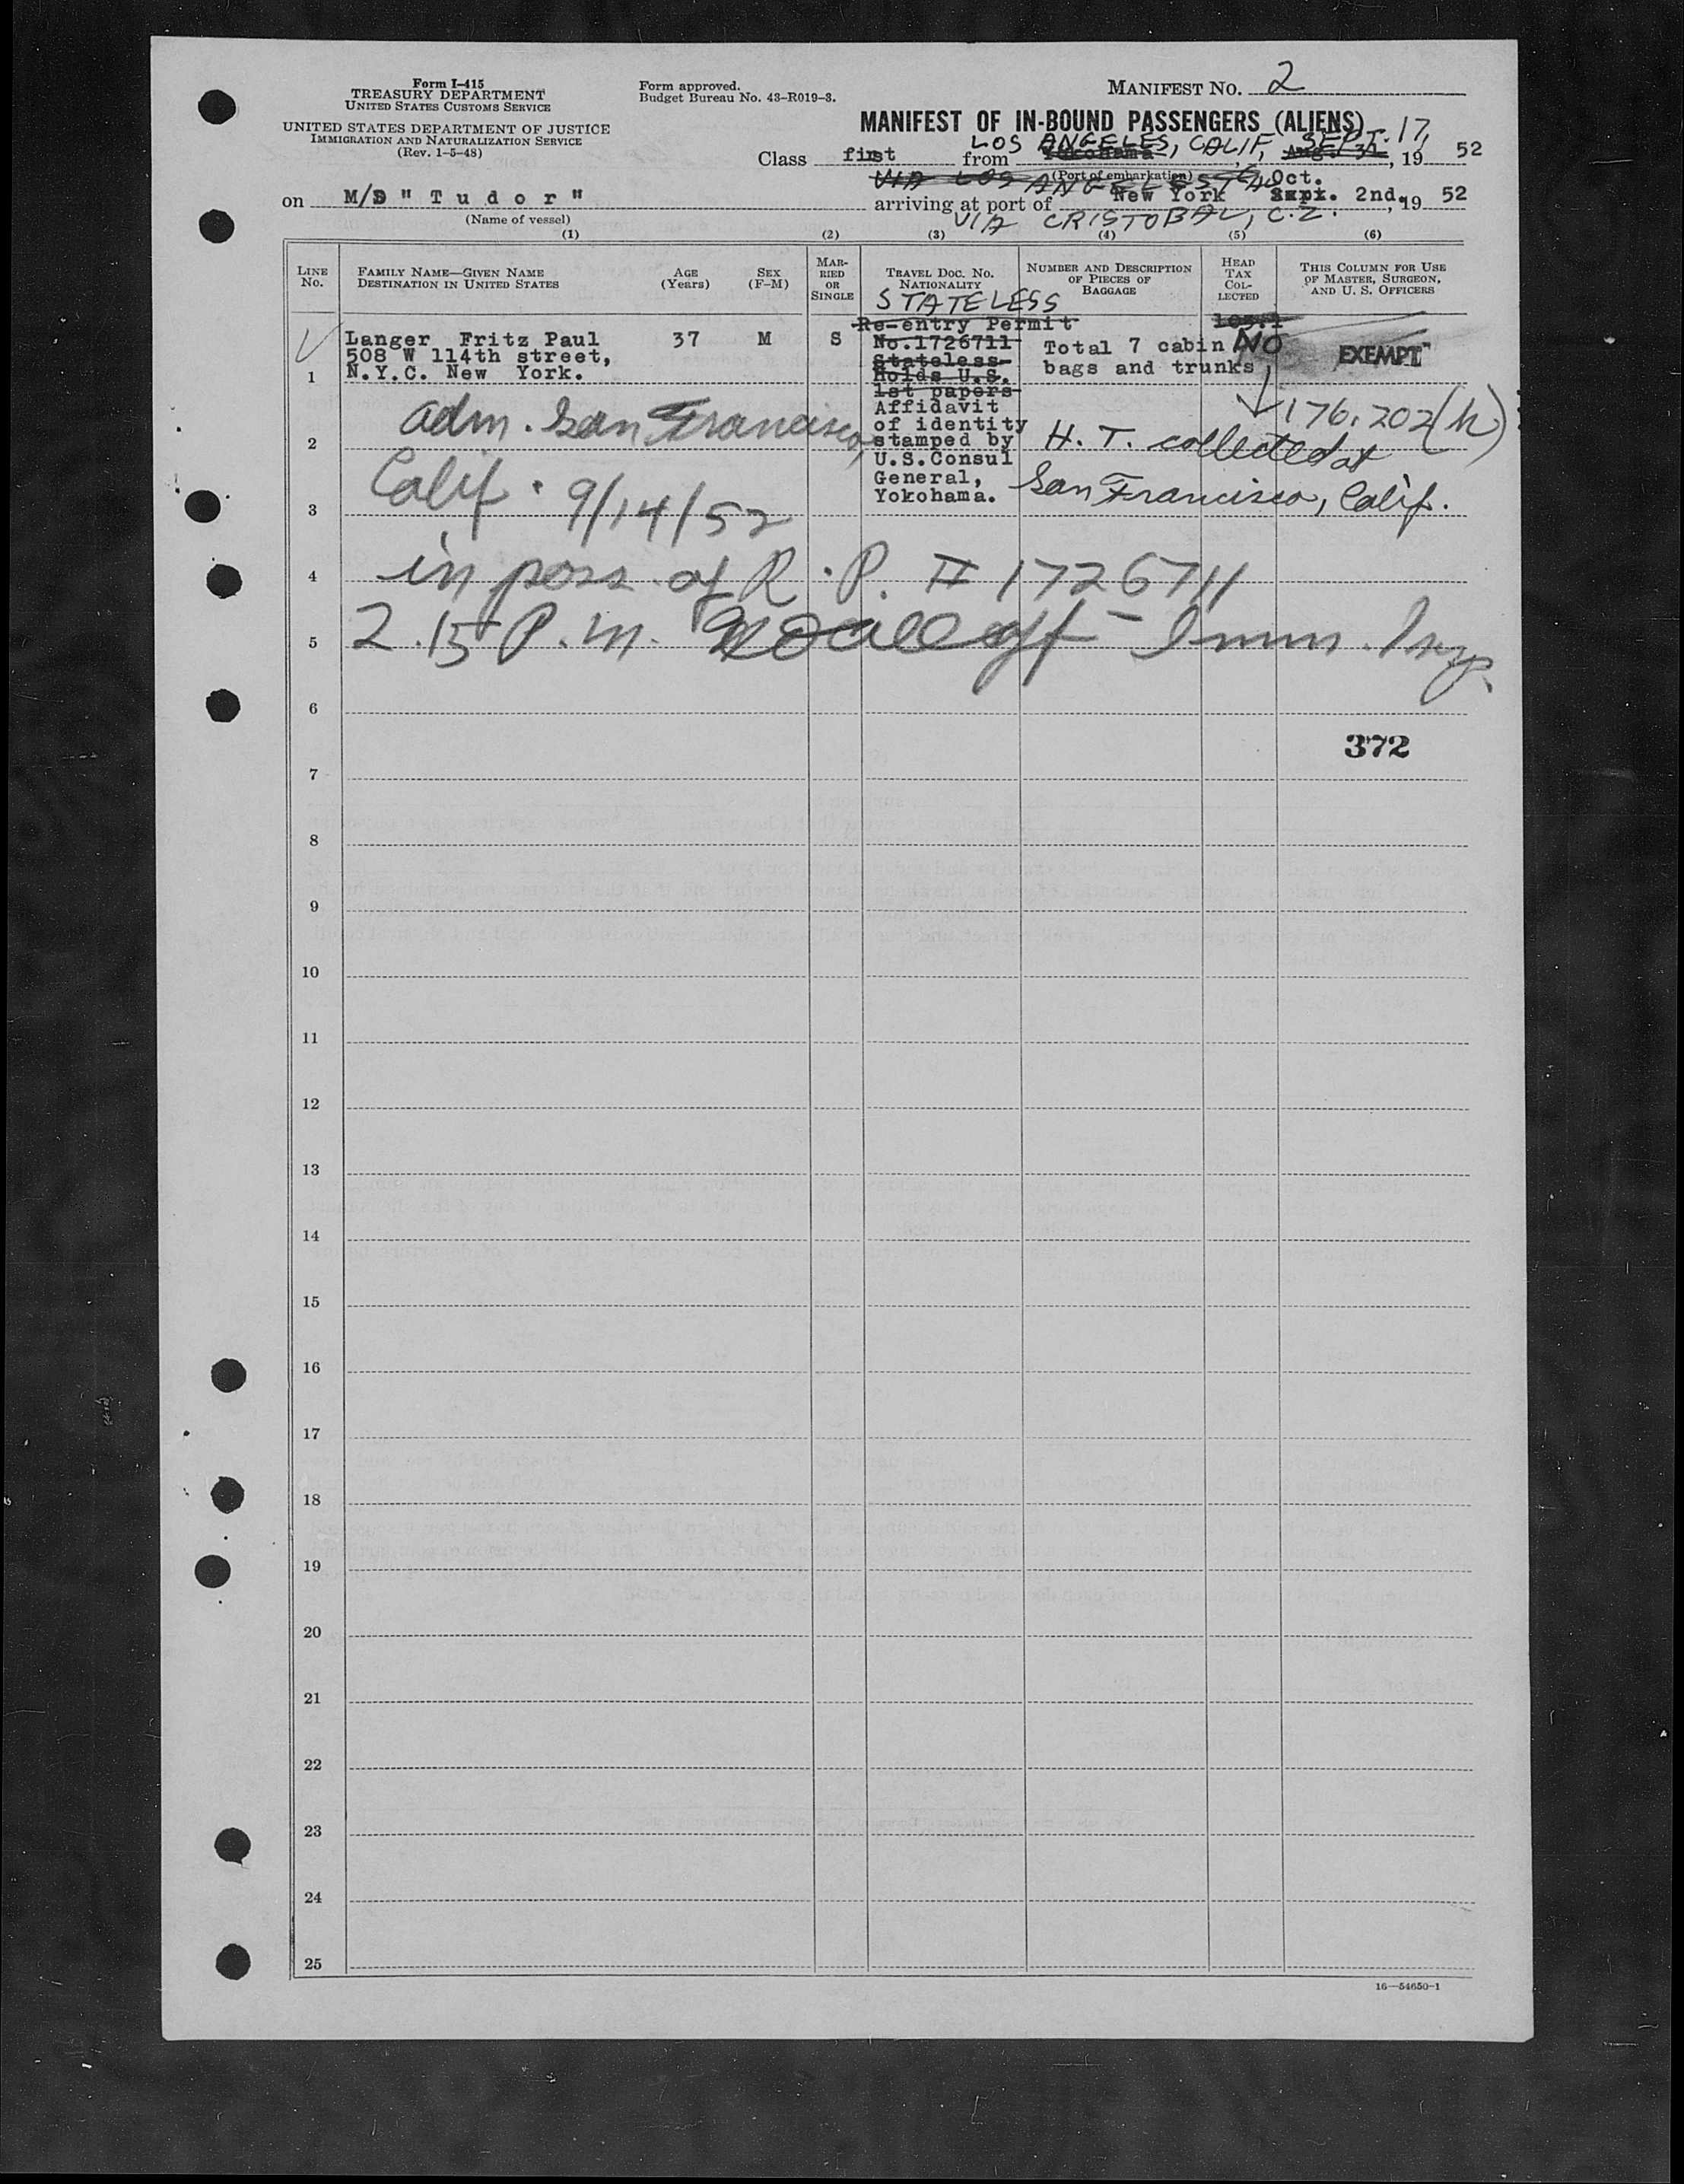 Form I-415
TREASURY DEPARTMENT
UNITED STATES CUSTOMS SERVICE
UNITED STATES DEPARTMENT OF JUSTICE
IMMIGRATION AND NATURALIZATION SERVICE
(Rev. 1-5-48)
Form approved.
Budget Bureau No. 43-R019-3.
MANIFEST No. 2
MANIFEST OF IN-BOUND PASSENGERS (ALIENS)
LOS ANGELES, CALIF, SEPT. 17,
Class first from Yokohama, Aug. 31, 19 52
(Port of embarkation)
VIA LOS ANGELES Oct.
on M/S "Tudor" arriving at port of New York Sept. 2nd, 19 52
(Name of vessel)
VIA CRISTOBAL, C.Z.
(1) (2) (3) (4) (5) (6)
LINE No.
FAMILY NAME—GIVEN NAME
DESTINATION IN UNITED STATES
AGE
(Years)
SEX
(F-M)
MARRIED OR SINGLE
TRAVEL DOC. NO.
NATIONALITY
NUMBER AND DESCRIPTION OF PIECES OF BAGGAGE
HEAD TAX COLLECTED
THIS COLUMN FOR USE OF MASTER, SURGEON, AND U. S. OFFICERS
STATELESS
1
Langer Fritz Paul 37 M S
508 W 114th street,
N.Y.C. New York.
Re-entry Permit
No.1726711
Stateless-
Holds U.S.
1st papers-
Affidavit
of identity
stamped by
U.S.Consul
General,
Yokohama.
Total 7 cabin
bags and trunks
NO
EXEMPT
176.202(h)
H. T. collected at
San Francisco, Calif.
2
adm. San Francisco,
3
Calif. 9/14/52
4
in poss. of R.P. # 1726711
5
2.15 P.m. Imm. Insp.
6
372
7
8
9
10
11
12
13
14
15
16
17
18
19
20
21
22
23
24
25
16—54650-1